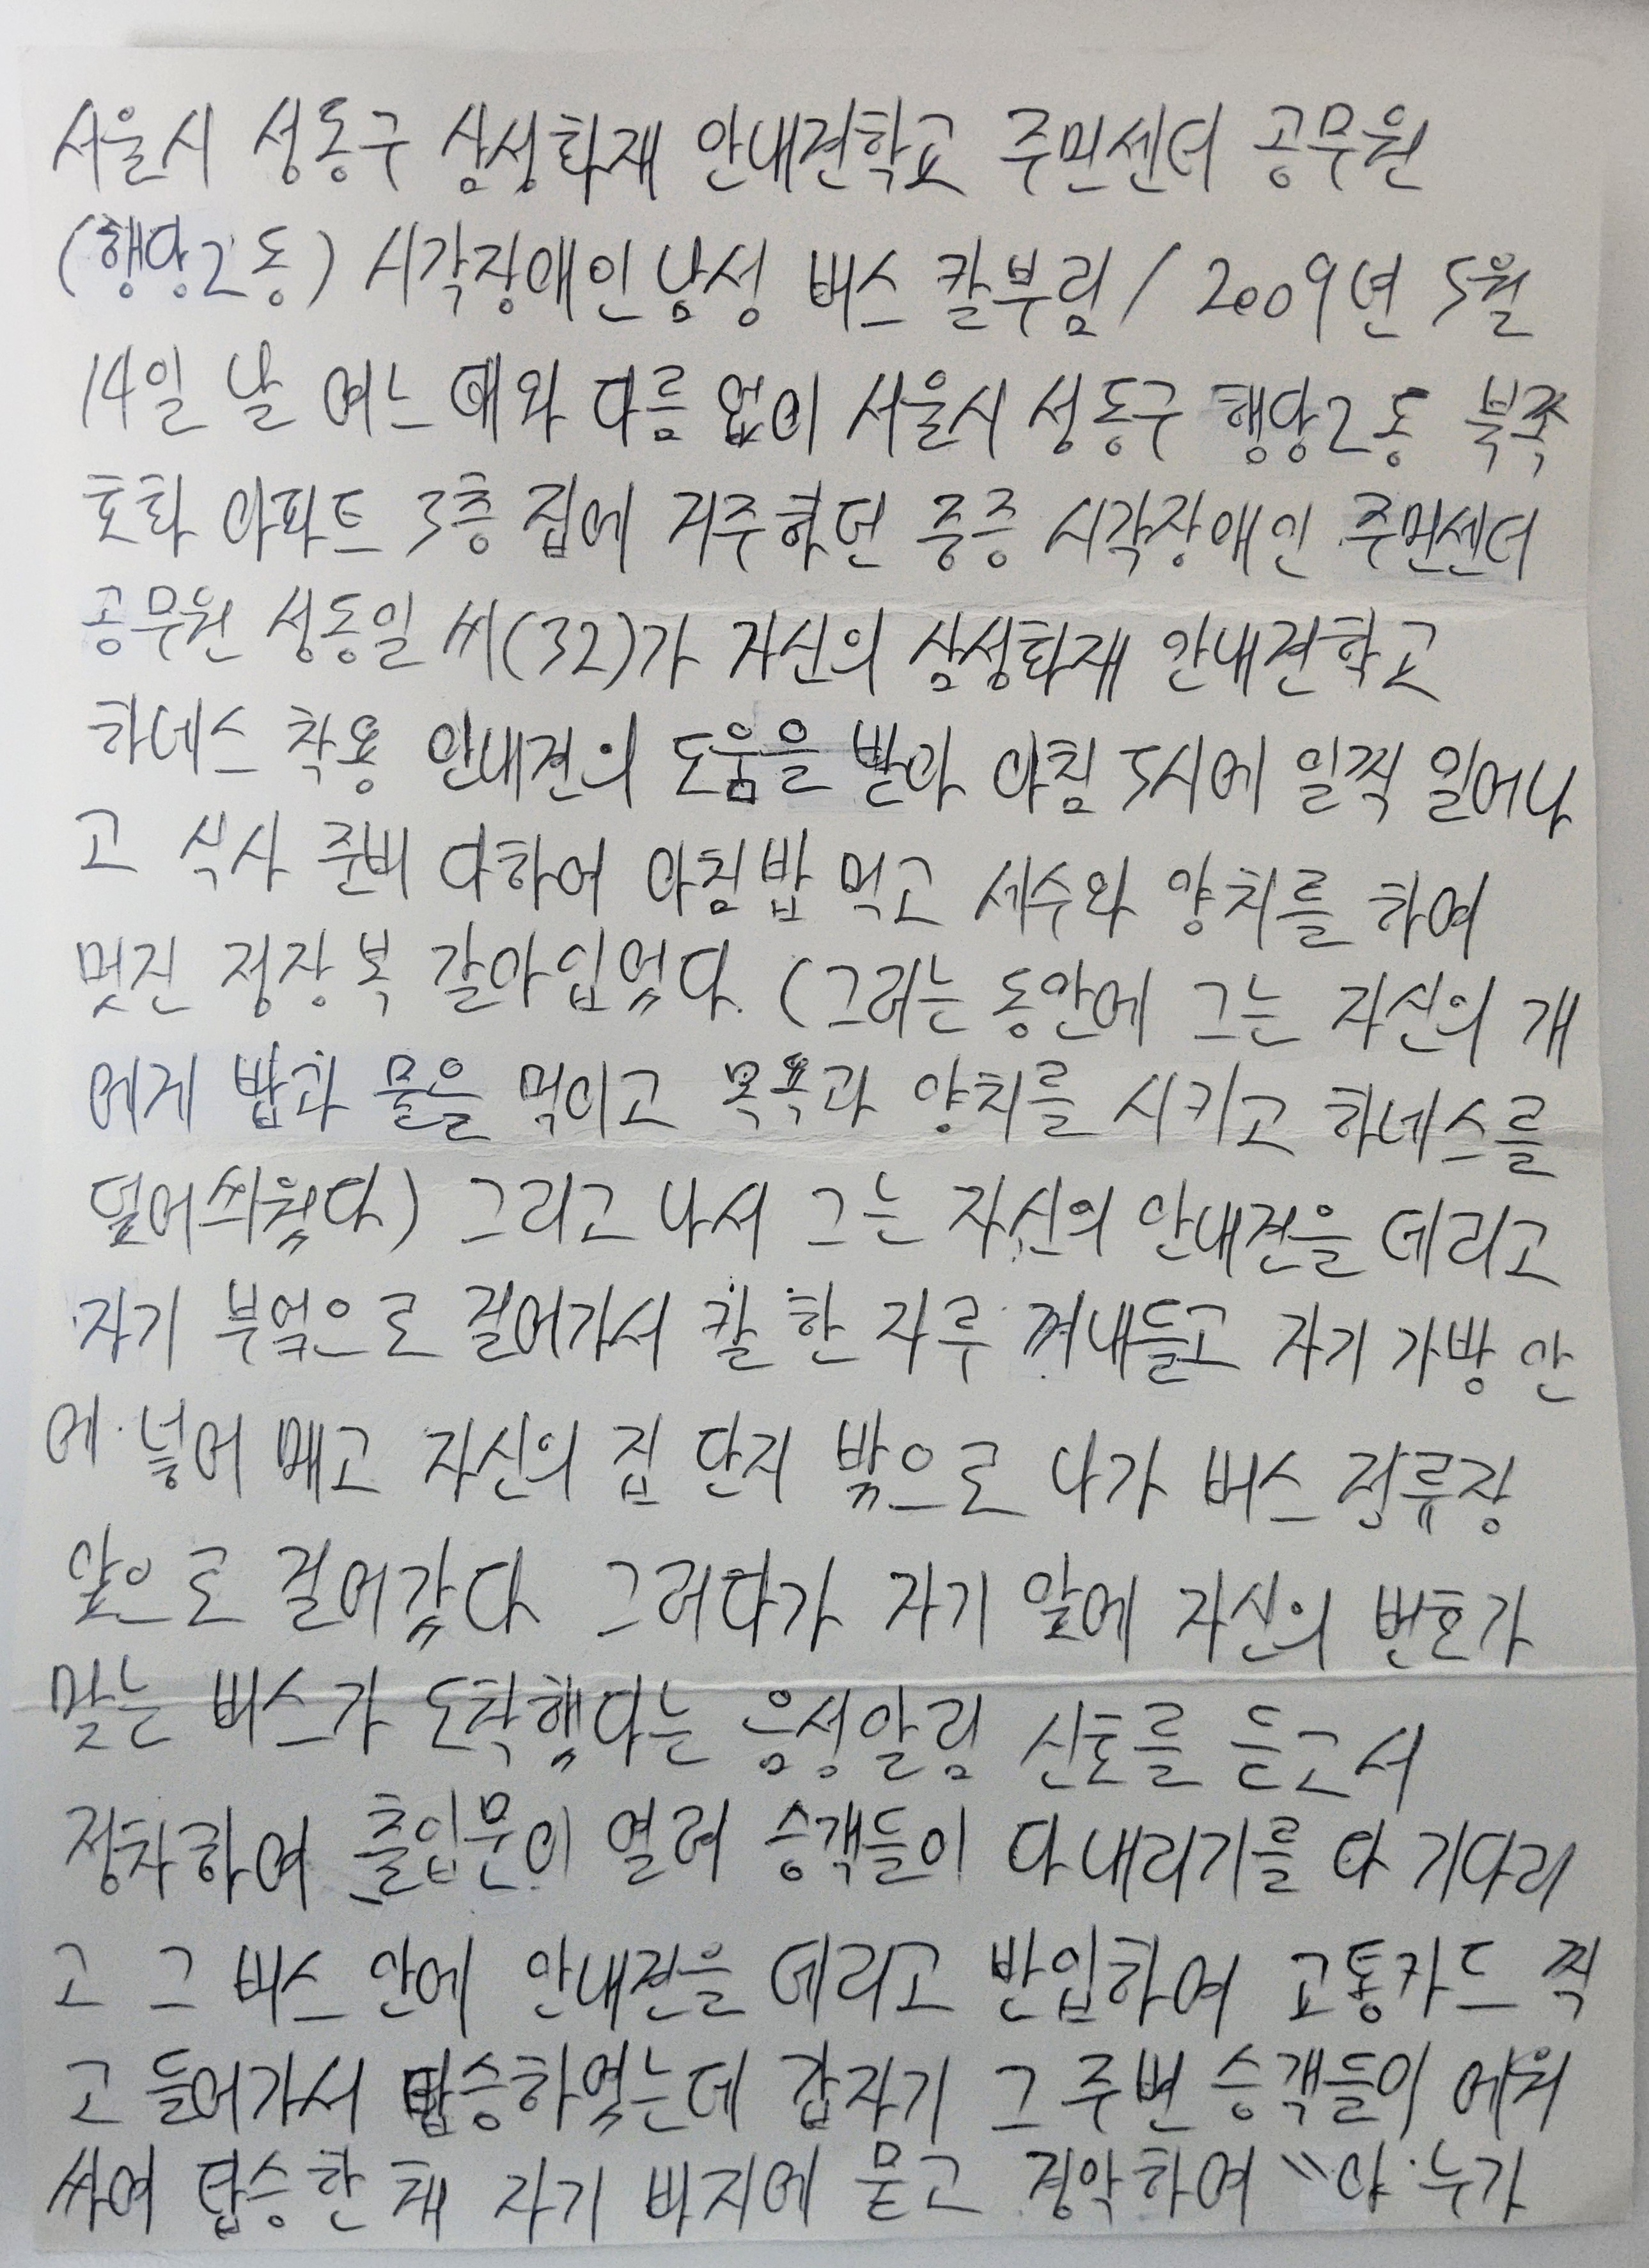 서울시 성동구 삼성화재 안내견학교 주민센터 공무원
(행당2동) 시각장애인 남성 버스 칼부림 / 2009년 5월
14일 날 여느 때와 다름 없이 서울시 성동구 행당2동 북쪽
한화 아파트 3층 집에 거주하던 중증 시각장애인 주민센터
공무원 성동일 씨(32)가 자신의 삼성화재 안내견학교
하네스 착용 안내견의 도움을 받아 아침 5시에 일찍 일어나
고 식사 준비 다하여 아침밥 먹고 세수와 양치를 하여
멋진 정장 복 갈아입었다. (그러는 동안에 그는 자신의 개
에게 밥과 물을 먹이고 목욕과 양치를 시키고 하네스를
덮어씌웠다) 그리고 나서 그는 자신의 안내견을 데리고
자기 부엌으로 걸어가서 칼 한 자루 꺼내들고 자기 가방 안
에 넣어 메고 자신의 집 단지 밖으로 나가 버스 정류장
앞으로 걸어갔다 그러다가 자기 앞에 자신의 번호가
맞는 버스가 도착했다는 음성알림 신호를 듣고서
정차하여 출입문이 열려 승객들이 다 내리기를 다 기다리
고 그 버스 안에 안내견을 데리고 반입하여 교통카드 찍
고 들어가서 탑승하였는데 갑자기 그 주변 승객들이 에워
싸여 탑승한 채 자기 바지에 묻고 경악하여 "야 누가